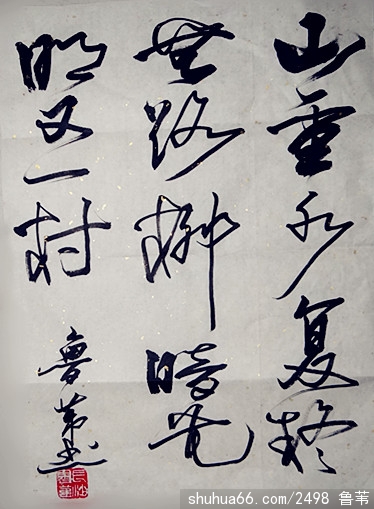 山重水复疑
無路柳暗花
明又一村
鲁苇书
shuhua66.com/2498 鲁苇